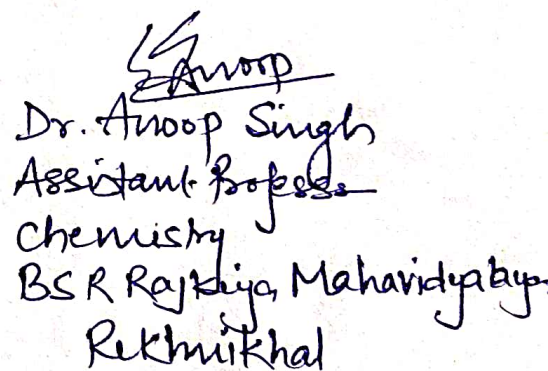 Anoop
Dr. Anoop Singh
Assistant Professor
Chemistry
BSR Rajkiya Mahavidyalaya
Rikhnikhal